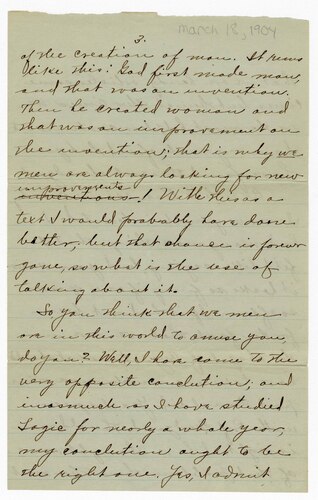 March 18, 1904
3.
of the creation of man. It runs
like this: God first made man,
and that was an invention.
Then he created woman and
that was an improvement on
the invention; that is why we
men are always looking for new
improvements
inventions! With this as a
text I would probably have done
better, but that chance is forever
gone, so what is the use of
talking about it.
So you think that we men
are in this world to amuse you,
do you? Well, I have come to the
very opposite conclution, and
inasmuch as I have studied
Logic for nearly a whole year,
my conclution ought to be
the right one. Yes, I admit